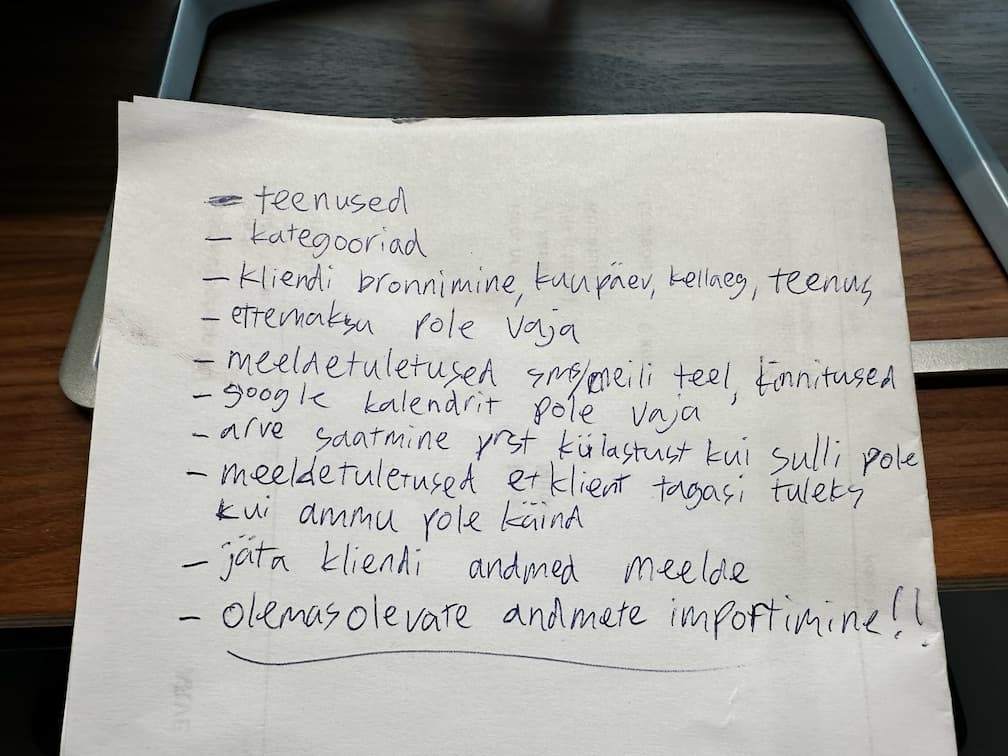 - teenused
- kategooriad
- kliendi bronnimine, kuupäev, kellaeg, teenus
- ettemaksu pole vaja
- meeldetuletused sms/meili teel, kinnitused
- google kalendrit pole vaja
- arve saatmine prst külastust kui sulli pole
- meeldetuletused et klient tagasi tuleks
kui ammu pole käind
- jäta kliendi andmed meelde
- olemasolevate andmete importimine!!